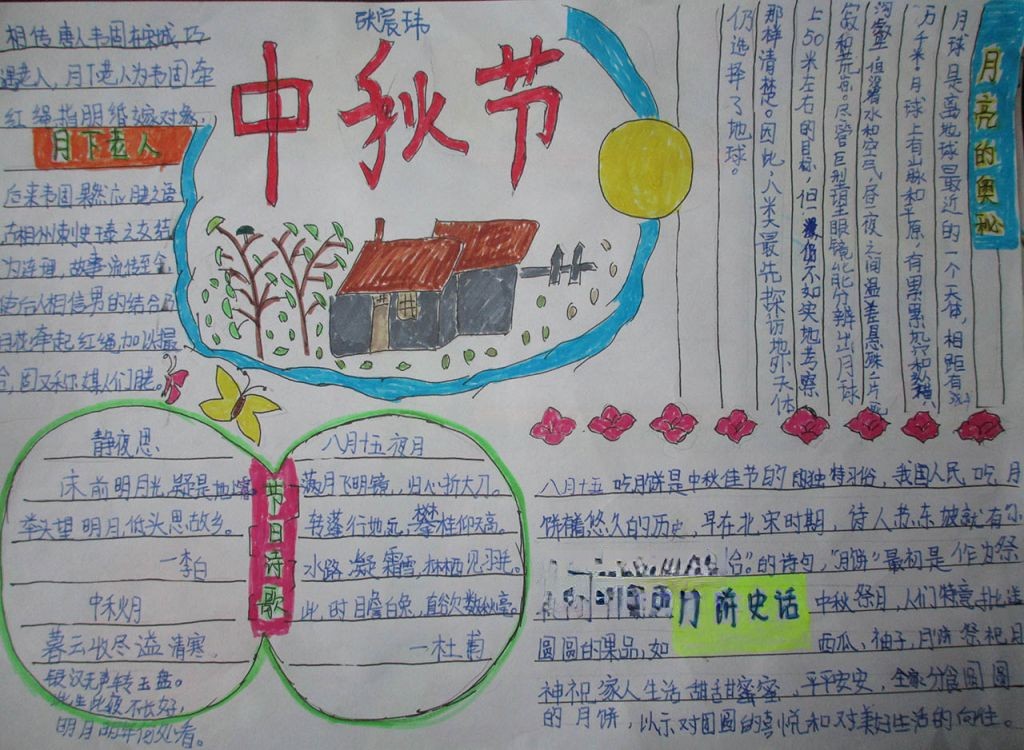 张宸玮
中秋节
相传唐人韦固在宋城巧
遇老人，月下老人为韦固牵
红绳指明婚嫁对象，
月下老人
后来韦固果然应腱之语
与相州刺史王泰之女结
为连理，故事流传至今，
使后人相信男的结合是
月老牵起红绳加以撮
合，因又称媒人们腱。
月亮的奥秘
月球是离地球最近的一个天体，相距有
万千米。月球上有山脉和平原，有累累
伯没有水和空气，昼夜之间温差悬殊一片死
寂和荒凉。尽管巨型望远眼镜能分辨出月球
上50米左右的目标，但仍不如实地考察
那样清楚。因此，人类最先探访地外天体
仍选择了地球。
静夜思
床前明月光，疑是地
举头望明月，低头思故乡。
—李白
中秋月
暮云收尽溢清寒，
银汉无声转玉盘。
此生此夜不长好，
明月明年何处看。
节日诗歌
八月十五夜月
满月飞明镜，归心折大刀。
转蓬行地远，攀桂仰天高。
水路凝霜雪，林栖见羽毛。
此时瞻白兔，直欲数秋毫。
—杜甫
八月十五吃月饼是中秋佳节的独特习俗，我国人民吃月
饼有着悠久的历史，早在北宋时期，诗人苏东坡就有
的诗句，“月饼”最初是作为祭
月饼史话
中秋祭月，人们特意
圆圆的果品，如
西瓜、柚子，月饼祭祀月
神祝家人生活甜甜蜜蜜、平平安安，全家分食圆圆
的月饼，以示对团圆的喜悦和对美好生活的向往。